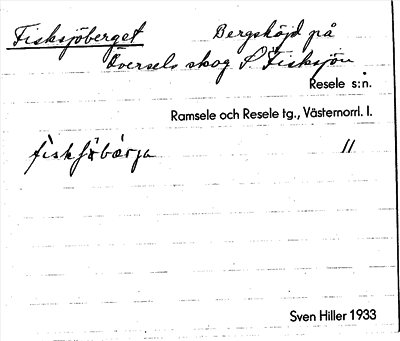 Fisksjöberget Bergshöjd på
Översels skog S Fisksjön
Resele s:n.
Ramsele och Resele tg., Västernorrl. l.
fiskʃöbärja "
Sven Hiller 1933